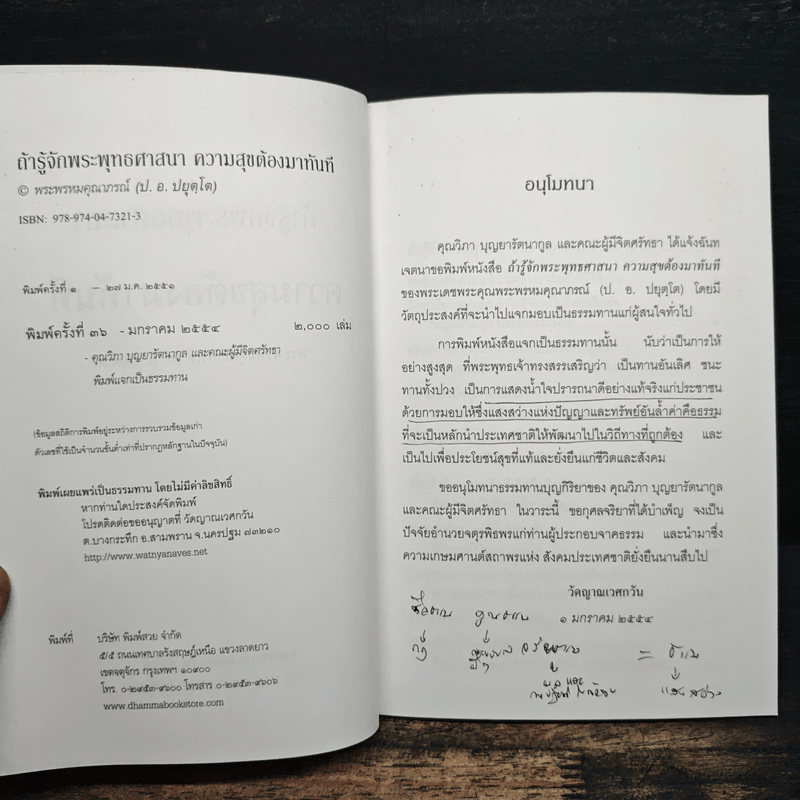 ถ้ารู้จักพระพุทธศาสนา ความสุขต้องมาทันที
© พระพรหมคุณาภรณ์ (ป. อ. ปยุตฺโต)
ISBN: 978-974-04-7321-3
พิมพ์ครั้งที่ ๑ – ๒๗ ม.ค. ๒๕๕๑
พิมพ์ครั้งที่ ๓๖ - มกราคม ๒๕๕๔ ๒,๐๐๐ เล่ม
- คุณวิภา บุญยารัตนากูล และคณะผู้มีจิตศรัทธา
พิมพ์แจกเป็นธรรมทาน
(ข้อมูลสถิติการพิมพ์อยู่ระหว่างการรวบรวมข้อมูลเก่า
ตัวเลขที่ใช้เป็นจำนวนขั้นต่ำเท่าที่ปรากฏหลักฐานในปัจจุบัน)
พิมพ์เผยแพร่เป็นธรรมทาน โดยไม่มีค่าลิขสิทธิ์
หากท่านใดประสงค์จัดพิมพ์
โปรดติดต่อขออนุญาตที่ วัดญาณเวศกวัน
ต.บางกระทึก อ.สามพราน จ.นครปฐม ๗๓๒๑๐
http://www.watnyanaves.net
พิมพ์ที่ บริษัท พิมพ์สวย จำกัด
๕/๕ ถนนเทศบาลรังสฤษฎ์เหนือ แขวงลาดยาว
เขตจตุจักร กรุงเทพฯ ๑๐๙๐๐
โทร. ๐-๒๙๕๓-๙๖๐๐ โทรสาร ๐-๒๙๕๓-๙๖๐๖
www.dhammabookstore.com
อนุโมทนา
คุณวิภา บุญยารัตนากูล และคณะผู้มีจิตศรัทธา ได้แจ้งฉันท
เจตนาขอพิมพ์หนังสือ ถ้ารู้จักพระพุทธศาสนา ความสุขต้องมาทันที
ของพระเดชพระคุณพระพรหมคุณาภรณ์ (ป. อ. ปยุตฺโต) โดยมี
วัตถุประสงค์ที่จะนำไปแจกมอบเป็นธรรมทานแก่ผู้สนใจทั่วไป
การพิมพ์หนังสือแจกเป็นธรรมทานนั้น นับว่าเป็นการให้
อย่างสูงสุด ที่พระพุทธเจ้าทรงสรรเสริญว่า เป็นทานอันเลิศ ชนะ
ทานทั้งปวง เป็นการแสดงน้ำใจปรารถนาดีอย่างแท้จริงแก่ประชาชน
ด้วยการมอบให้ซึ่งแสงสว่างแห่งปัญญาและทรัพย์อันล้ำค่าคือธรรม
ที่จะเป็นหลักนำประเทศชาติให้พัฒนาไปในวิถีทางที่ถูกต้อง และ
เป็นไปเพื่อประโยชน์สุขที่แท้และยั่งยืนแก่ชีวิตและสังคม
ขออนุโมทนาธรรมทานบุญกิริยาของ คุณวิภา บุญยารัตนากูล
และคณะผู้มีจิตศรัทธา ในวาระนี้ ขอกุศลจริยาที่ได้บำเพ็ญ จงเป็น
ปัจจัยอำนวยจตุรพิธพรแก่ท่านผู้ประกอบจาคธรรม และนำมาซึ่ง
ความเกษมศานต์สถาพรแห่ง สังคมประเทศชาติยั่งยืนนานสืบไป
วัดญาณเวศกวัน
๑ มกราคม ๒๕๕๔